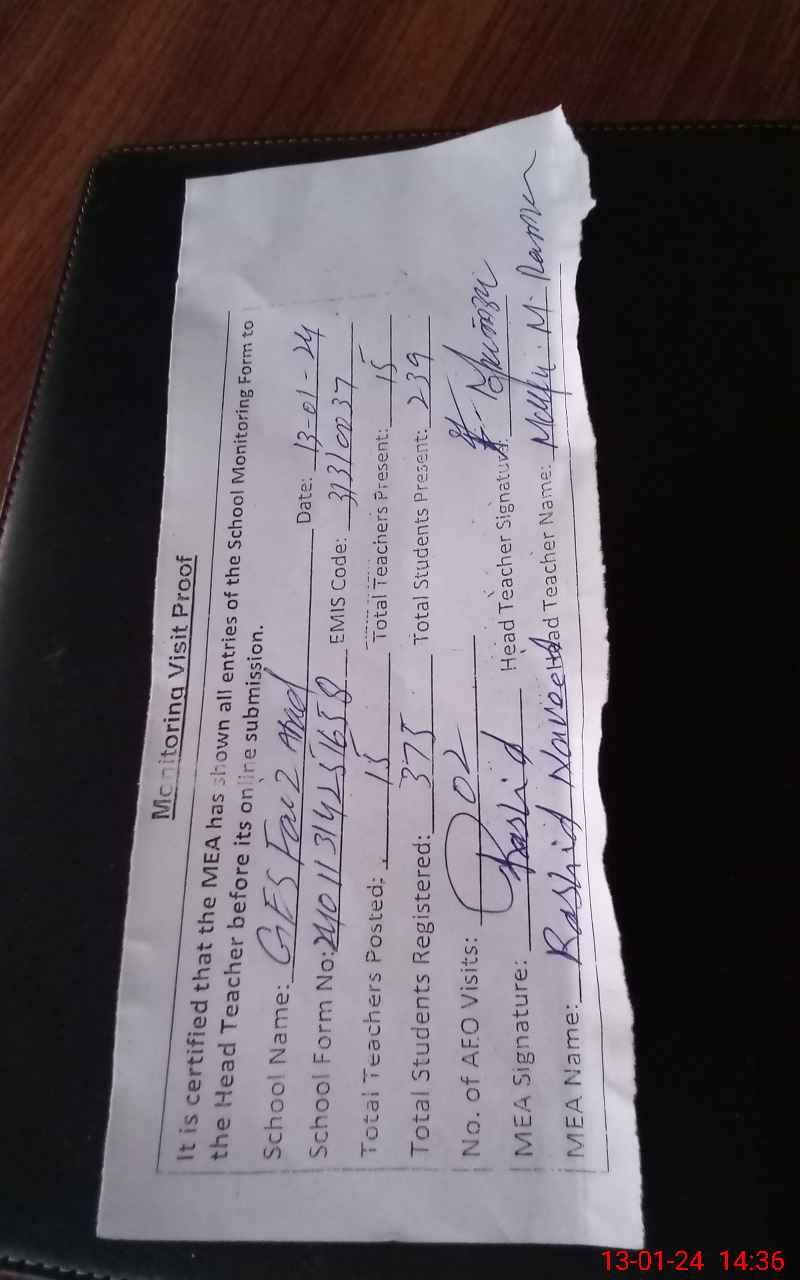 Monitoring Visit Proof
It is certified that the MEA has shown all entries of the School Monitoring Form to
the Head Teacher before its online submission.
School Name: GES Faiz Abad Date: 13-01-24
School Form No: EMIS Code: 31310037
Total Teachers Posted: 15 Total Teachers Present: 15
Total Students Registered: 375 Total Students Present: 239
No. of AEO Visits: 02
MEA Signature: Rashid Head Teacher Signature:
MEA Name: Rashid Naveed Head Teacher Name:
13-01-24 14:36